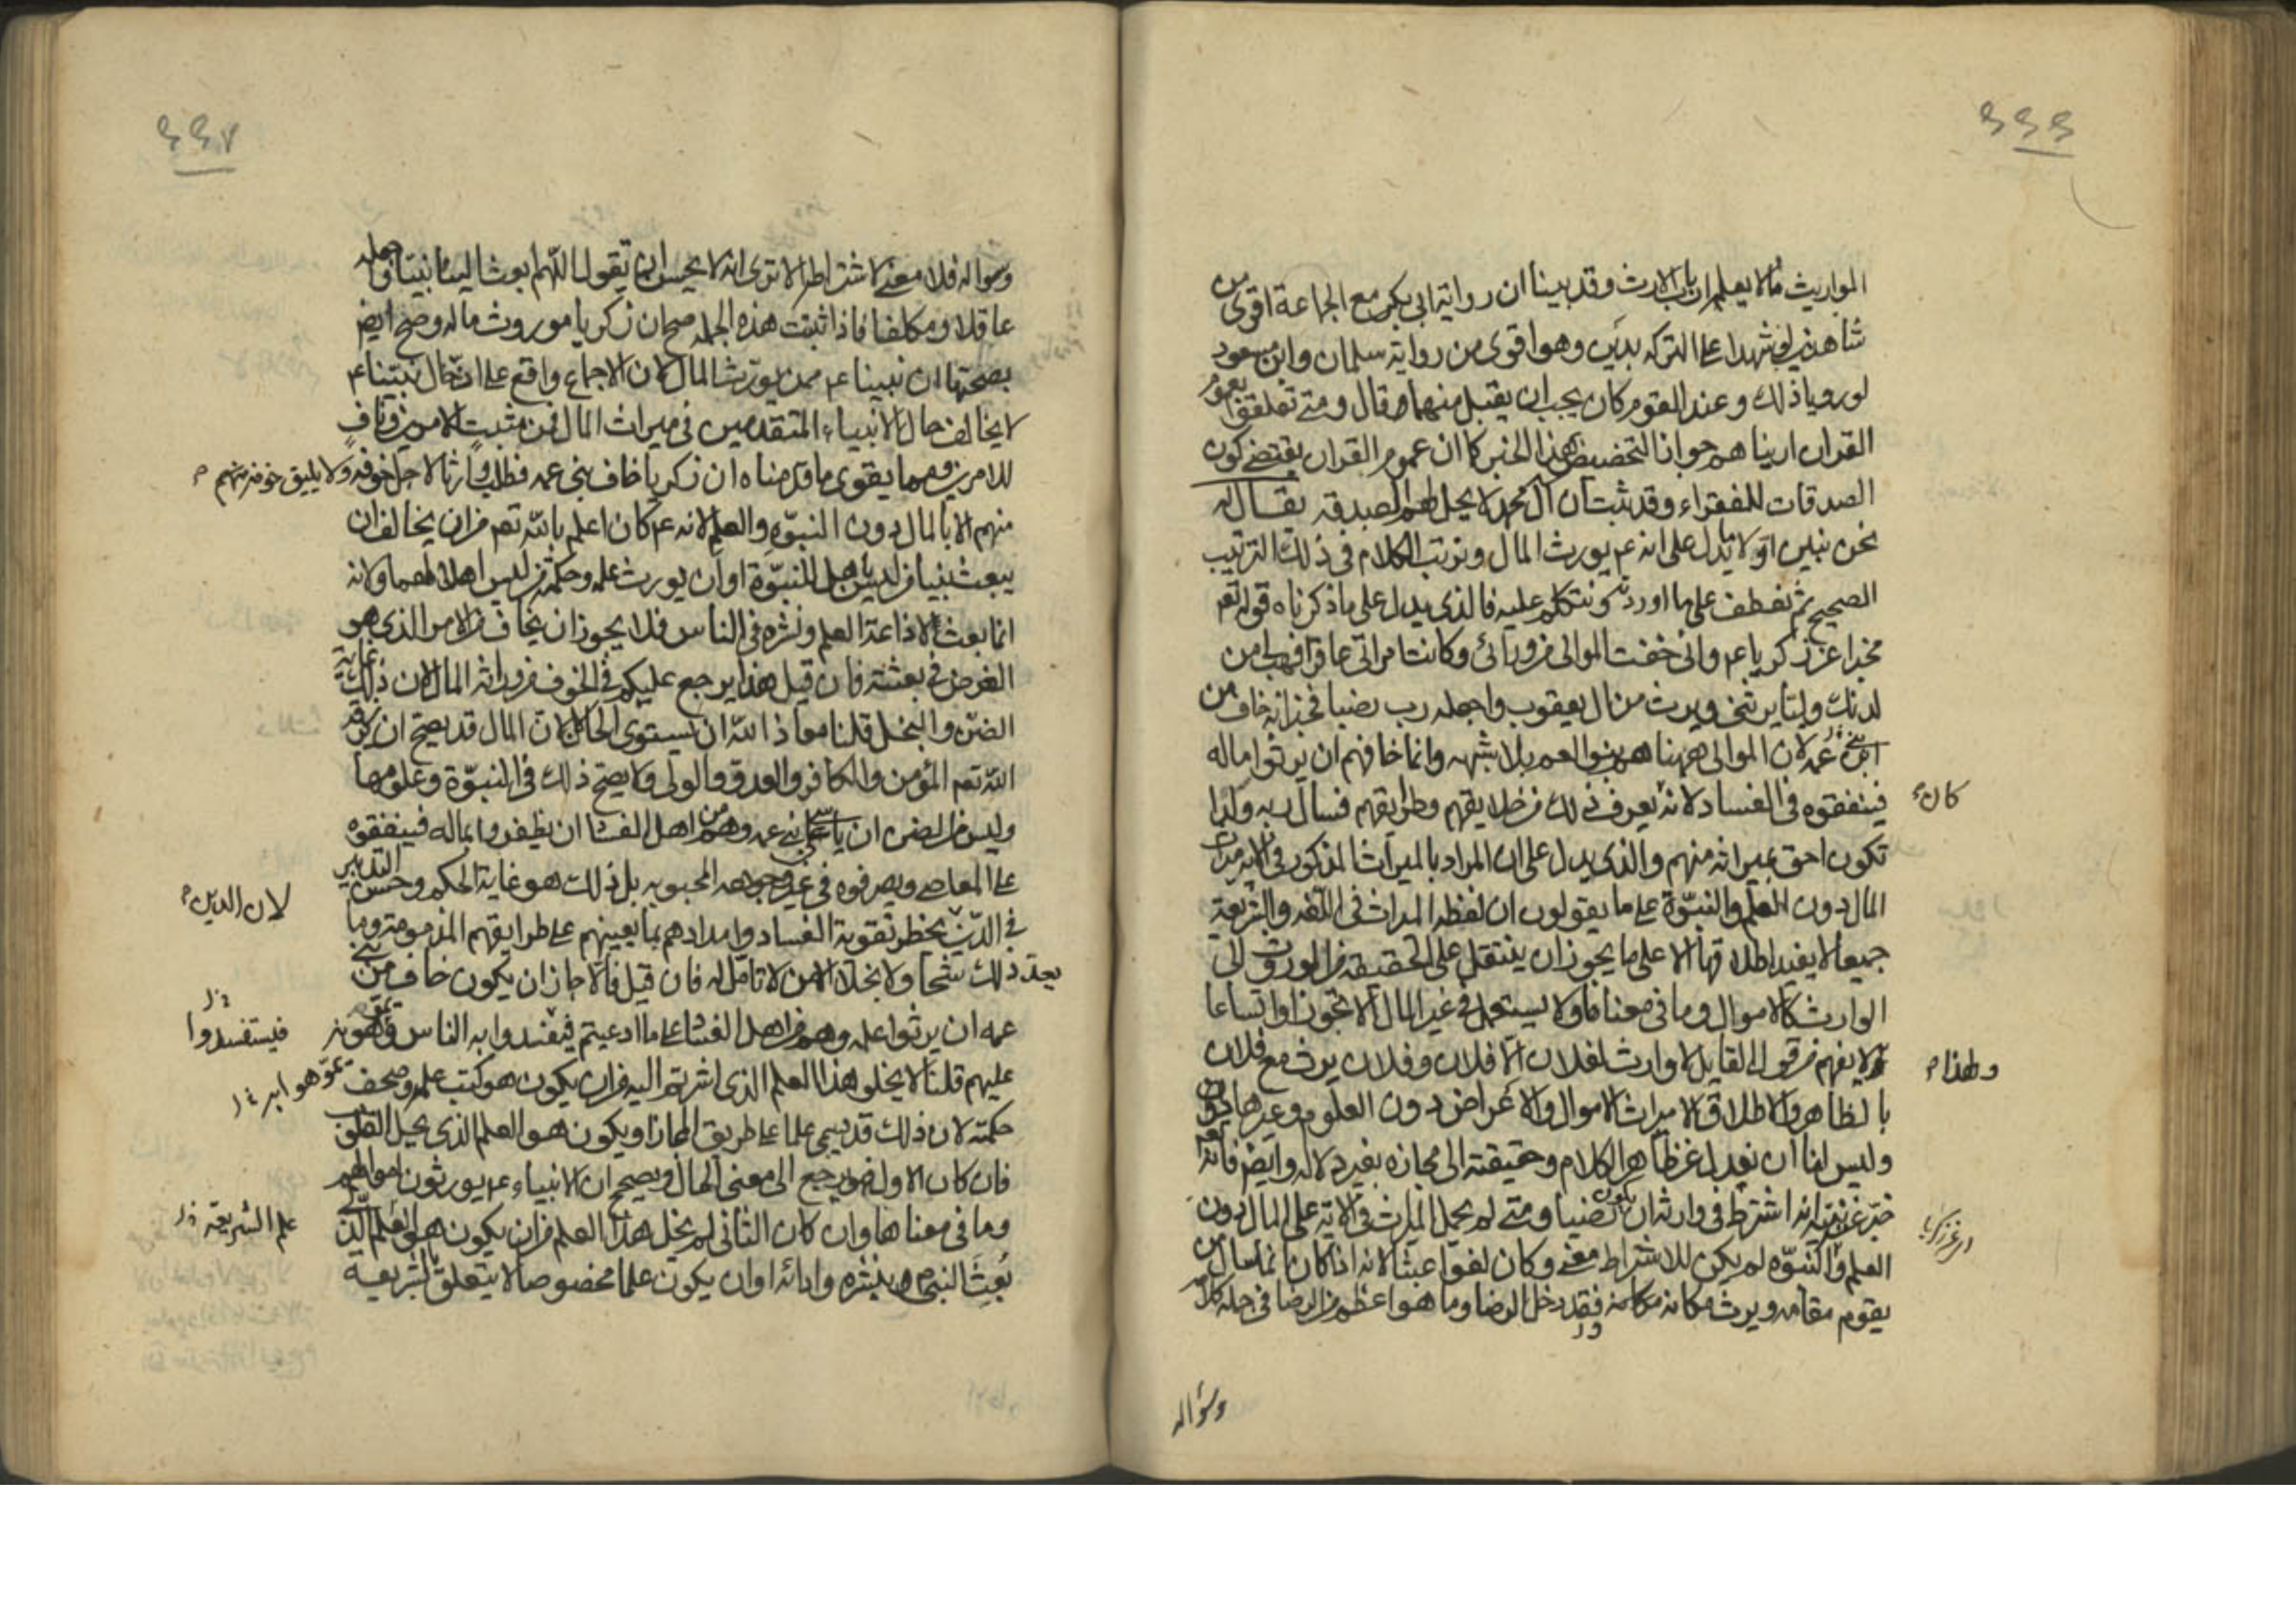 ٤٤٦
المواريث ما لا يعلم ارباب الارث وقد بينا ان رواية ابي بكر مع الجماعة اقوى من
شاهدين لو شهدا على التركة بدين وهو اقوى من رواية سلمان وابن مسعود
لو رويا ذلك وعند القوم كان يجب ان يقبل منهما قال ومتى تعلقوا بعموم
القرآن اريناهم جواز التخصيص بهذا الخبر كما ان عموم القران يقتضي كون
الصدقات للفقراء وقد ثبت ان آل محمد لا يحل لهم الصدقة يقال له
نحن نبين اولا ما يدل على انه عم يورث المال ونرتب الكلام في ذلك الترتيب
الصحيح ثم نعطف على ما اوردته ونتكلم عليه فالذي يدل على ما ذكرناه قوله تعم
مخبرا عن زكريا عم واني خفت الموالى من ورائي وكانت امراتي عاقرا فهب لي من
لدنك وليا يرثني ويرث من ال يعقوب واجعله رب رضيا فخبر انه خاف من
بني عمه لان الموالى ههنا هم بنو العم بلا شبهه وانما خافهم ان يرثوا ماله
فينفقوه في الفساد لانه يعرف ذلك من خلايقهم وطرايقهم فسال ربه ولدا
كان
تكون احق بميراثه منهم والذي يدل على ان المراد بالميراث المذكور في الاية ميراث
المال دون العلم والنبوة على ما يقولون ان لفظه الميراث في اللغة والشريعة
جميعا لا يفيد اطلاقها الا على ما يجوز ان ينتقل على الحقيقه من الموروث الى
الوارث كالاموال وما في معناها ولا يستعمل في غير المال الا تجوزا واتساعا
ولهذا
لا يفهم من قول القايل لا وارث لفلان الا فلان وفلان يرث مع فلان
بالظاهر والاطلاق الا ميراث الاموال والاعراض دون العلوم وغيرها
وليس لنا ان نعدل عن ظاهر الكلام وحقيقته الى مجازه بغير دلاله وايضا فانه تعم
خبر عن نبيه انه اشترط في وارثه ان يكون رضيا ومتى لم يحمل الميراث في الاية على المال دون
العلم والنبوه لم يكن للاشتراط معنى وكان لغوا عبثا لانه اذا كان انما سال من
يقوم مقامه ويرث مكانه فقد دخل الرضا وما هو اعظم من الرضا في جمله كلامه
وسؤاله
٤٤٧
وسواله فلا معنى لاشتراطه الا ترى انه لا يحسن ان تقول اللهم ابعث الينا نبيا واجعله
عاقلا ومكلفا فاذا ثبتت هذه الجمله صح ان زكريا موروث ماله وصح ايضا
بصحتها ان نبينا عم ممن يورث المال لان الاجماع واقع على ان حال نبينا عم
لا يخالف حال الانبياء المتقدمين في ميراث المال فمن مثبت للامرين وناف
للامرين ومما يقوى ما قدمناه ان زكريا خاف بني عمه فطلب وارثا لاجل خوفه ولا يليق خوفه منهم
منهم الا بالمال دون النبوه والعلم لانه عم كان اعلم بالله تعم من ان يخاف ان
يبعث نبيا من ليس باهل للنبوة او ان يورث علمه وحكمته من ليس اهلا لهما ولانه
انما بعث لاذاعة العلم ونشره في الناس فلا يجوز ان يخاف من الامر الذي هو
الغرض في بعثته فان قيل هذا يرجع عليكم في الخوف من وراثة المال لان ذلك غاية
الضن والبخل قلنا معاذ الله ان يستوى الحال لان المال قد يصح ان يرزقه
الله تعم المؤمن والكافر والعدو والولي ولا يصح ذلك في النبوة وعلومها
وليس من الضن ان ياسى على بني عمه وهم من اهل الفساد ان يظفروا بماله فينفقوه
على المعاصي ويصرفوه في غير وجوهه المحبوبه بل ذلك هو غاية الحكمه وحسن التدبير
لان الدين
في الدين يحظر تقوية الفساد وامدادهم بما يعينهم على طرايقهم المذمومه وما
يعد ذلك شحا ولا بخلا الا من لا تامل له فان قيل فالا جاز ان يكون خاف من بني
عمه ان يرثوا علمه وهم من اهل الفساد على ما ادعيتم فيفسدوا به الناس ويموهونه
فيستفسدوا
عليهم قلنا لا يخلو هذا العلم الذي اشرتم اليه من ان يكون هو كتب علمه وصحف
حكمته لان ذلك قد يسمى علما على طريق المجاز او يكون هو العلم الذي يحل القلوب
فان كان الاول فهو يرجع الى معنى المال ويصحح ان الانبياء عم يورثون اموالهم
وما في معناها وان كان الثاني لم يخل هذا العلم من ان يكون هو العلم الذي
علم الشريعة
بعث النبي بنشره وادائه او ان يكون علما مخصوصا لا يتعلق بالشريعه